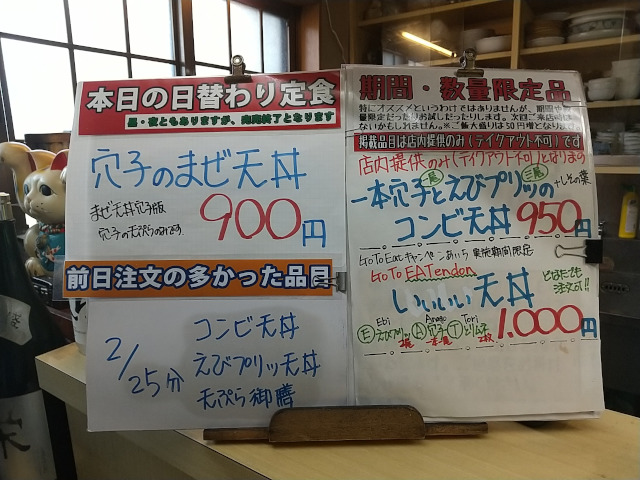 本日の日替わり定食
昼・夜ともありますが、完売終了となります
穴子のまぜ天丼
まぜ天丼穴子版
穴子の天ぷらのみです.
900円
前日注文の多かった品目
2/25分
コンビ天丼
えびプリッ天丼
天ぷら御膳
期間・数量限定品
特にオススメというわけではありませんが、期間や数
量限定だったりお試しだったりします。次回ご来店時は
ないかもしれません。※ご飯大盛りは50円増となります
掲載品目は店内提供のみ(テイクアウト不可)です
店内提供のみ(テイクアウト不可)となります
一本穴子とえびプリッの
一尾 三尾 +しその葉
コンビ天丼 950円
GoToEatキャンペーンあいち 実施期間限定
GoTo EATendon
いいいい天丼
どなたでも
注文可!!
Ebi Anago Tori
Ⓔえびプリッ Ⓐ穴子 Ⓣとりムネ
1,000円